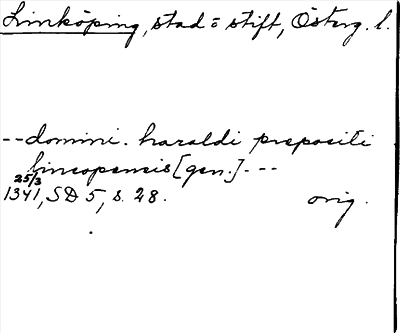 Linköping, stad= stift, Österg. l.
--domini. haraldi prepositi
lincopensis [gen.]. --
25/3
1341, SD 5, s. 28. orig.